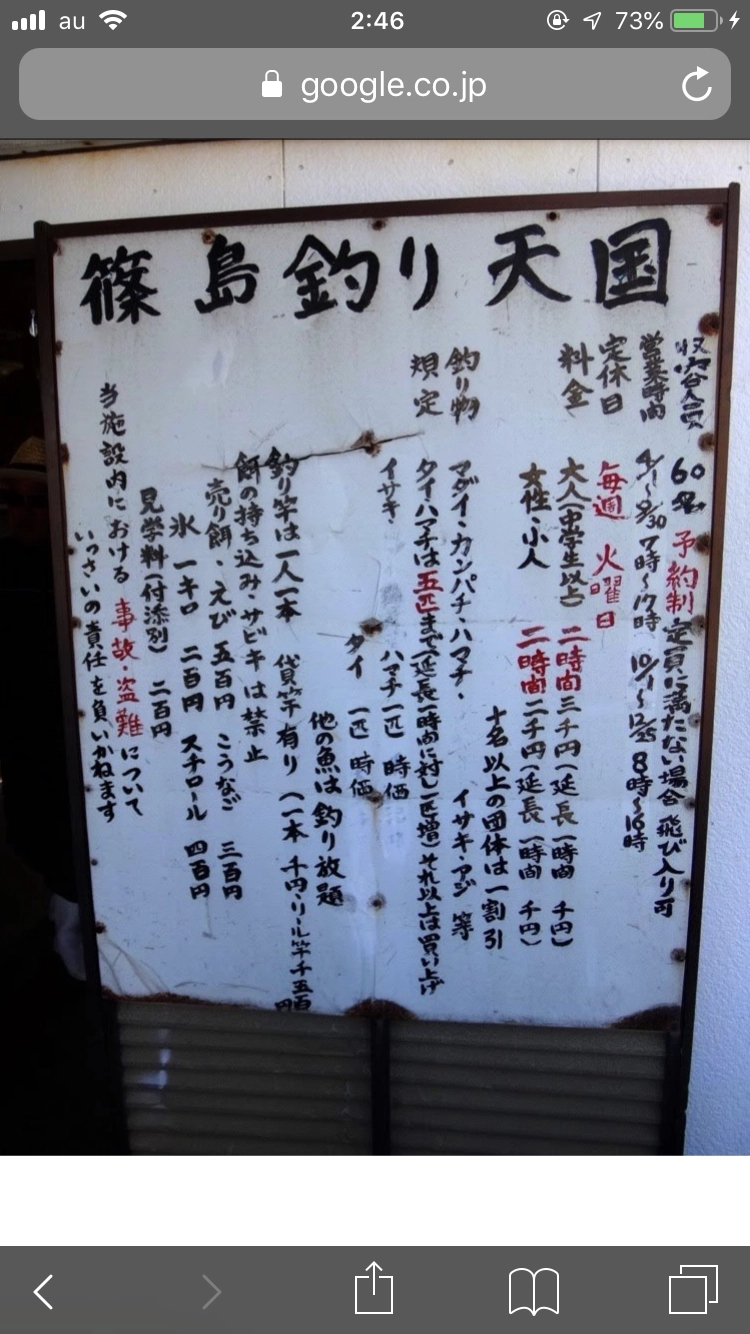 au
2:46
73%
google.co.jp
篠島釣り天国
収容人員 60名 予約制 定員に満たない場合 飛び入り可
営業時間 4/1〜9/30 7時〜17時 10/1〜12/25 8時〜16時
定休日 毎週 火曜日
料金 大人(中学生以上) 二時間三千円(延長一時間 千円)
女性・小人 二時間二千円(延長一時間 千円)
十名以上の団体は一割引
釣り物 マダイ・カンパチ・ハマチ・イサキ・アジ 等
規定 タイハマチは五匹まで(延長一時間に対し一匹増)それ以上は買い上げ
イサキ・ ハマチ一匹 時価
タイ 一匹 時価
他の魚は釣り放題
釣り竿は一人一本 貸竿有り(一本 千円・リール竿千五百円
餌の持ち込み・サビキは禁止
売り餌・えび 五百円 こうなご 三百円
氷 一キロ 二百円 スチロール 四百円
見学料(付添別) 二百円
当施設内における 事故・盗難について
いっさいの責任を負いかねます